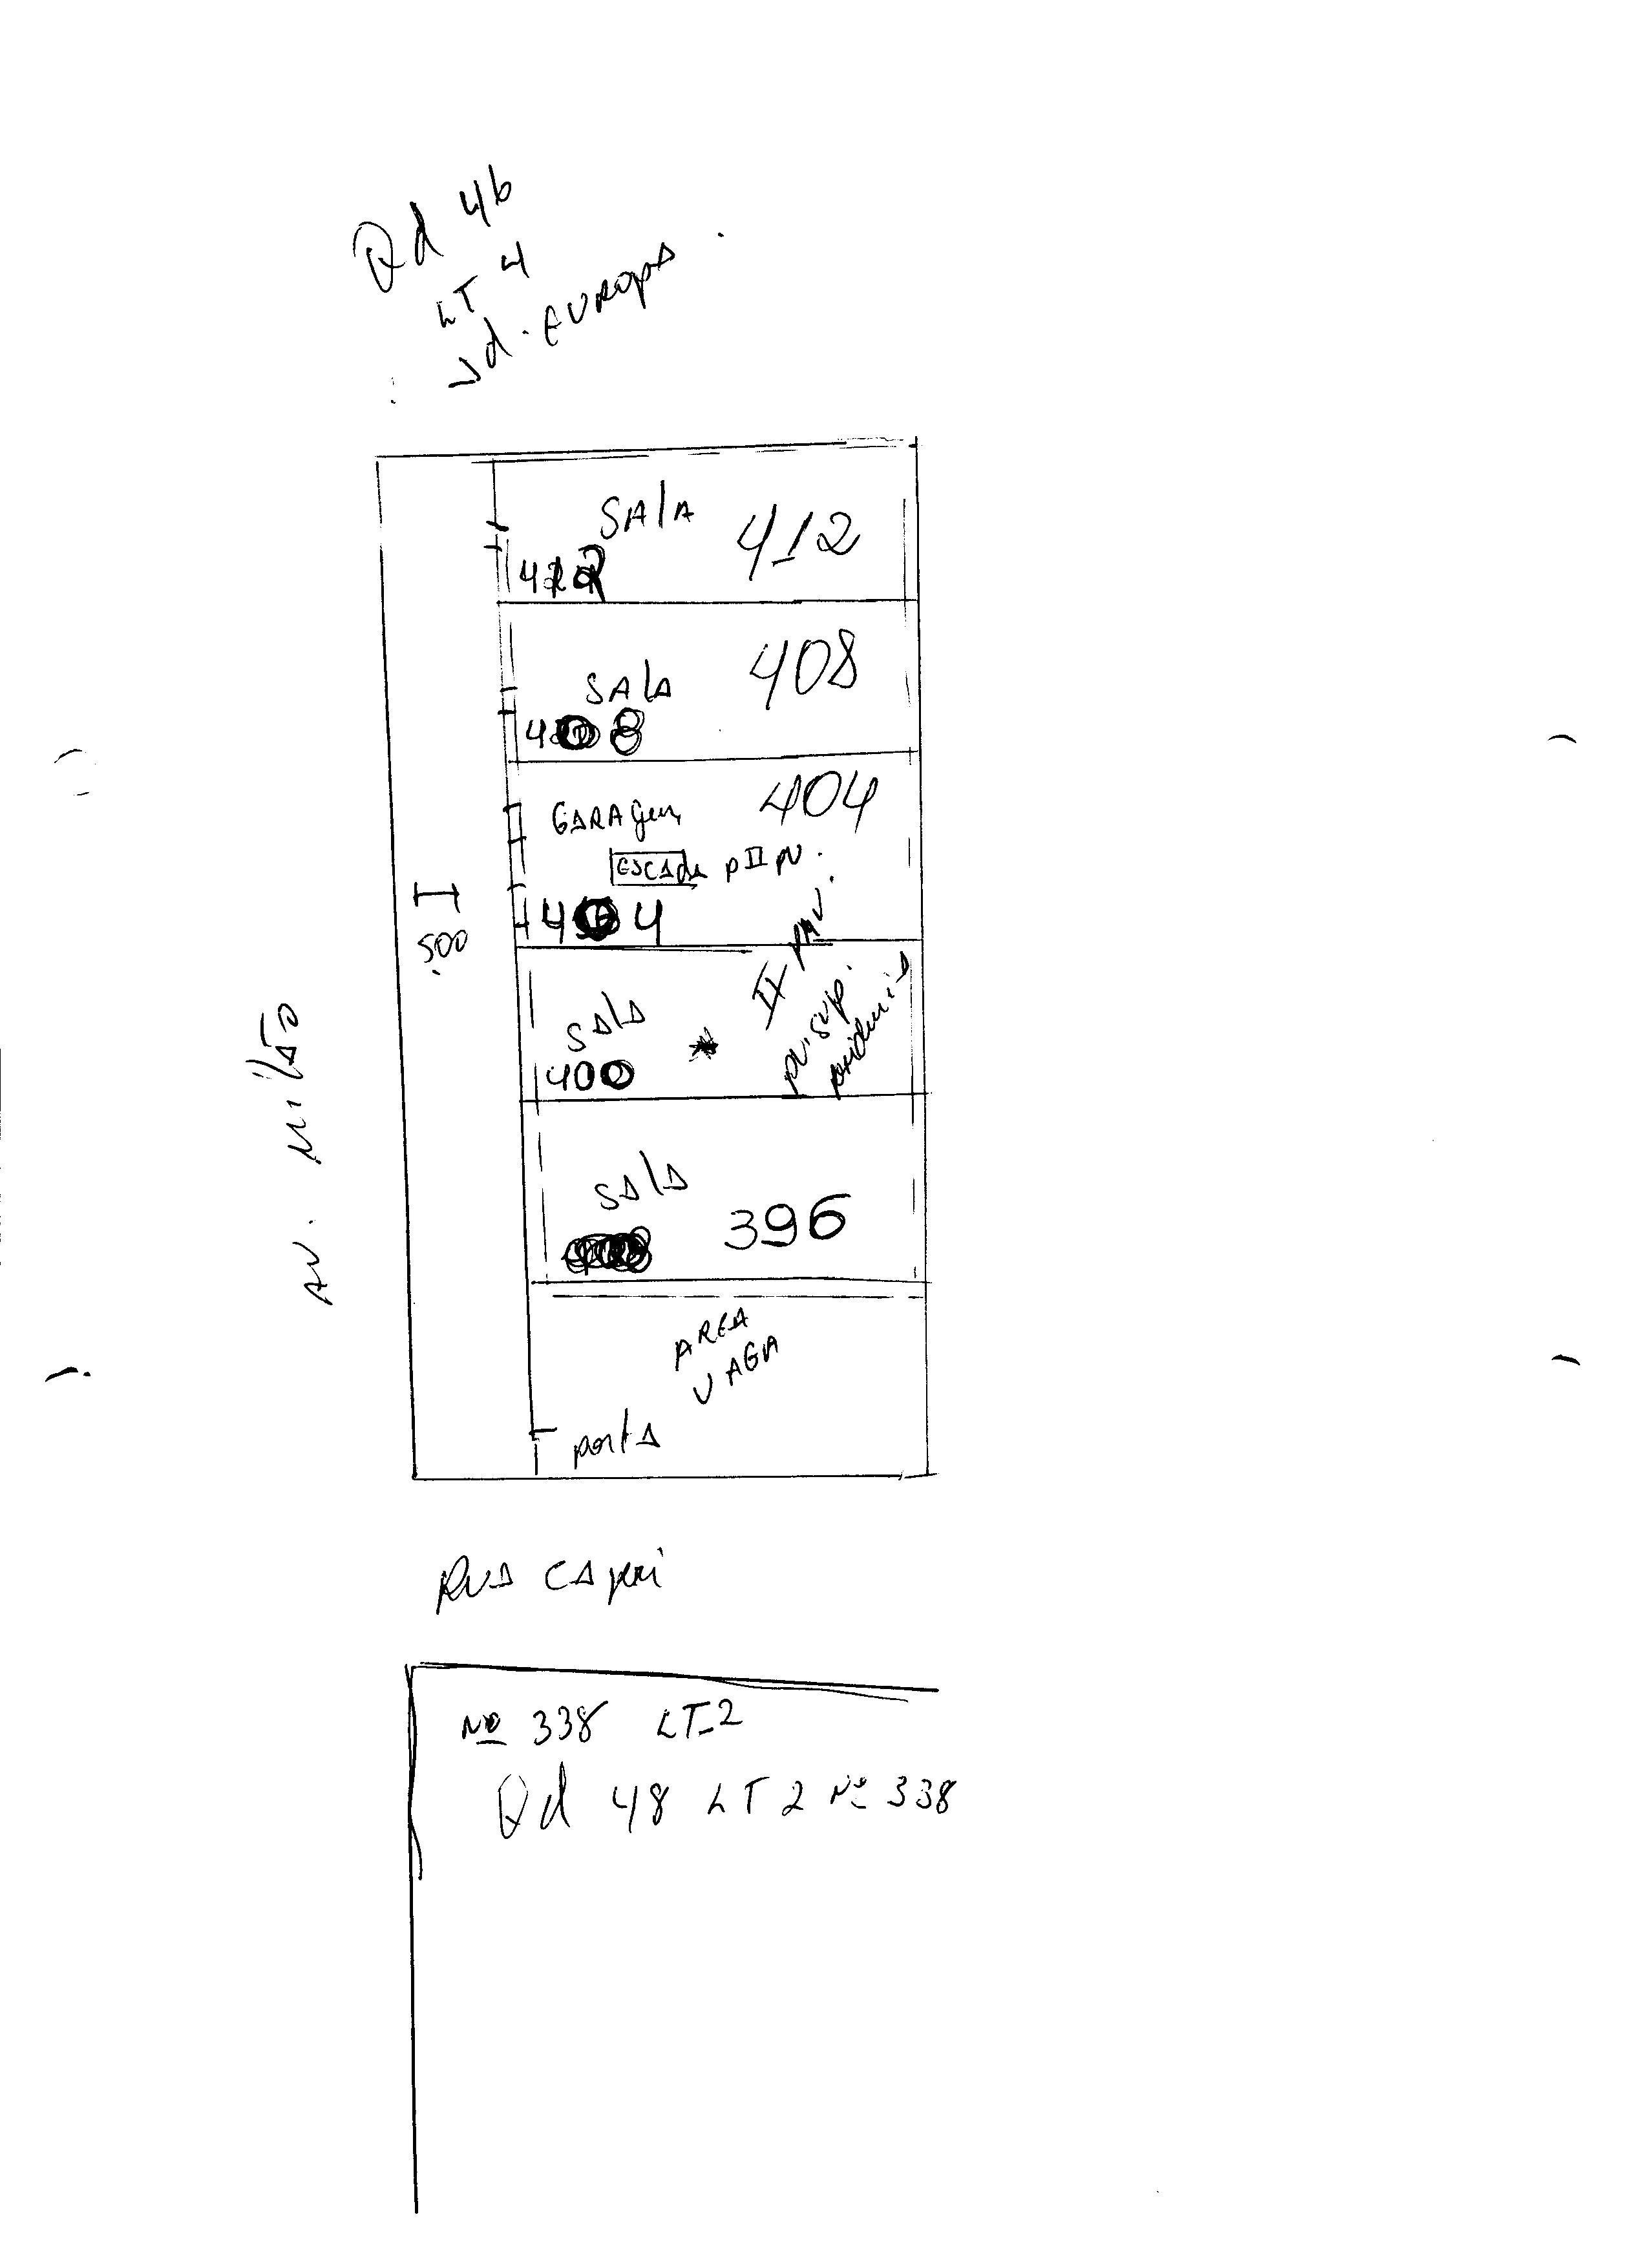 Qd 46
LT 4
Jd. EUROPA
SALA 412
412
SALA 408
408
GARAgem 404
ESCAda p II pv.
404
II PAV.
SALA
pv. sup.
400 *
500
I
AV. Milão
SALA
396
AREA
VAGA
porta
RUA CApri
Nº 338 LT-2
Qd 48 LT 2 Nº 338